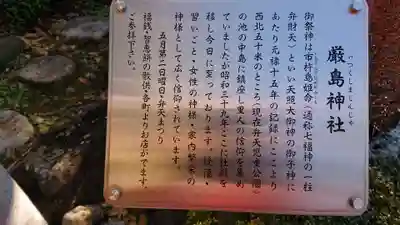 厳島神社
いつくしまじんじゃ
御祭神は市杵島姫命(通称七福神の一柱
弁財天)といい天照大御神の御子神に
あたり元禄十五年の記録にここより
西北五十米のところ(現在弁天児童公園)
の池の中島に鎮座し里人の信仰を集め
ていましたが昭和三十九年ここに社殿を
移し今日に至っております。技藝・
習いごと・女性の神様・家内繁栄の
神様として広く信仰されています。
五月第二日曜日・弁天まつり
福銭・智恵餅の散供・各町よりお店がでます。
ご参拝下さい。